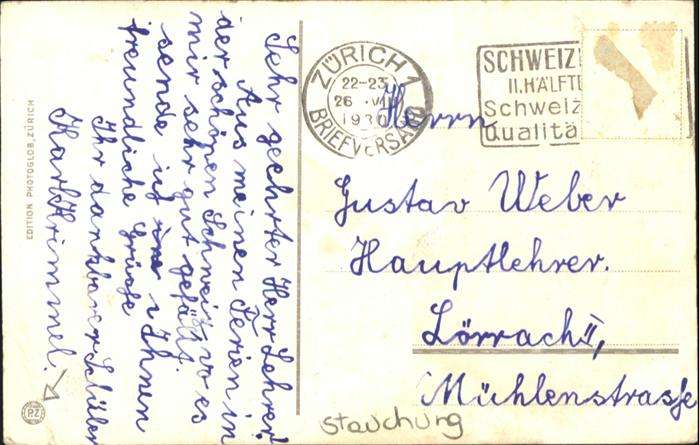 Sehr geehrter Herr Lehrer!
Aus meinen Ferien in
der schönen Schweiz, wo es
mir sehr gut gefällt,
sende ich Ihnen
freundliche Grüße
Ihr dankbarer Schüler
Karl Krimmel.
EDITION PHOTOGLOB, ZÜRICH
PZ
ZÜRICH 1
22-23
26. VII.
1930
BRIEFVERSAND
SCHWEIZ
II. HÄLFTE
Schweiz
Qualitä
Herrn
Gustav Weber
Hauptlehrer.
Lörrach II,
Mühlenstrasse
Stauchung